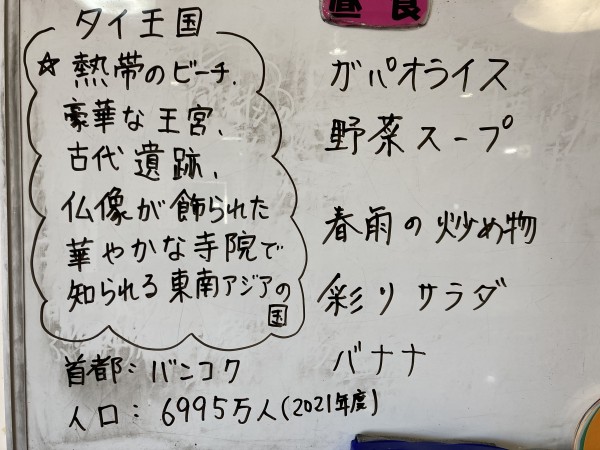 タイ王国
☆ 熱帯のビーチ、
豪華な王宮、
古代遺跡、
仏像が飾られた
華やかな寺院で
知られる東南アジアの
国
首都：バンコク
人口：6995万人(2021年度)
昼食
ガパオライス
野菜スープ
春雨の炒め物
彩りサラダ
バナナ